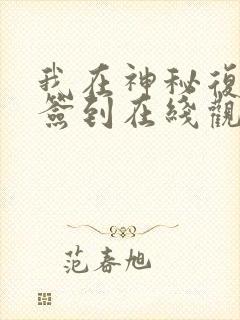 我在神秘復
簽到在綫觀
范春旭